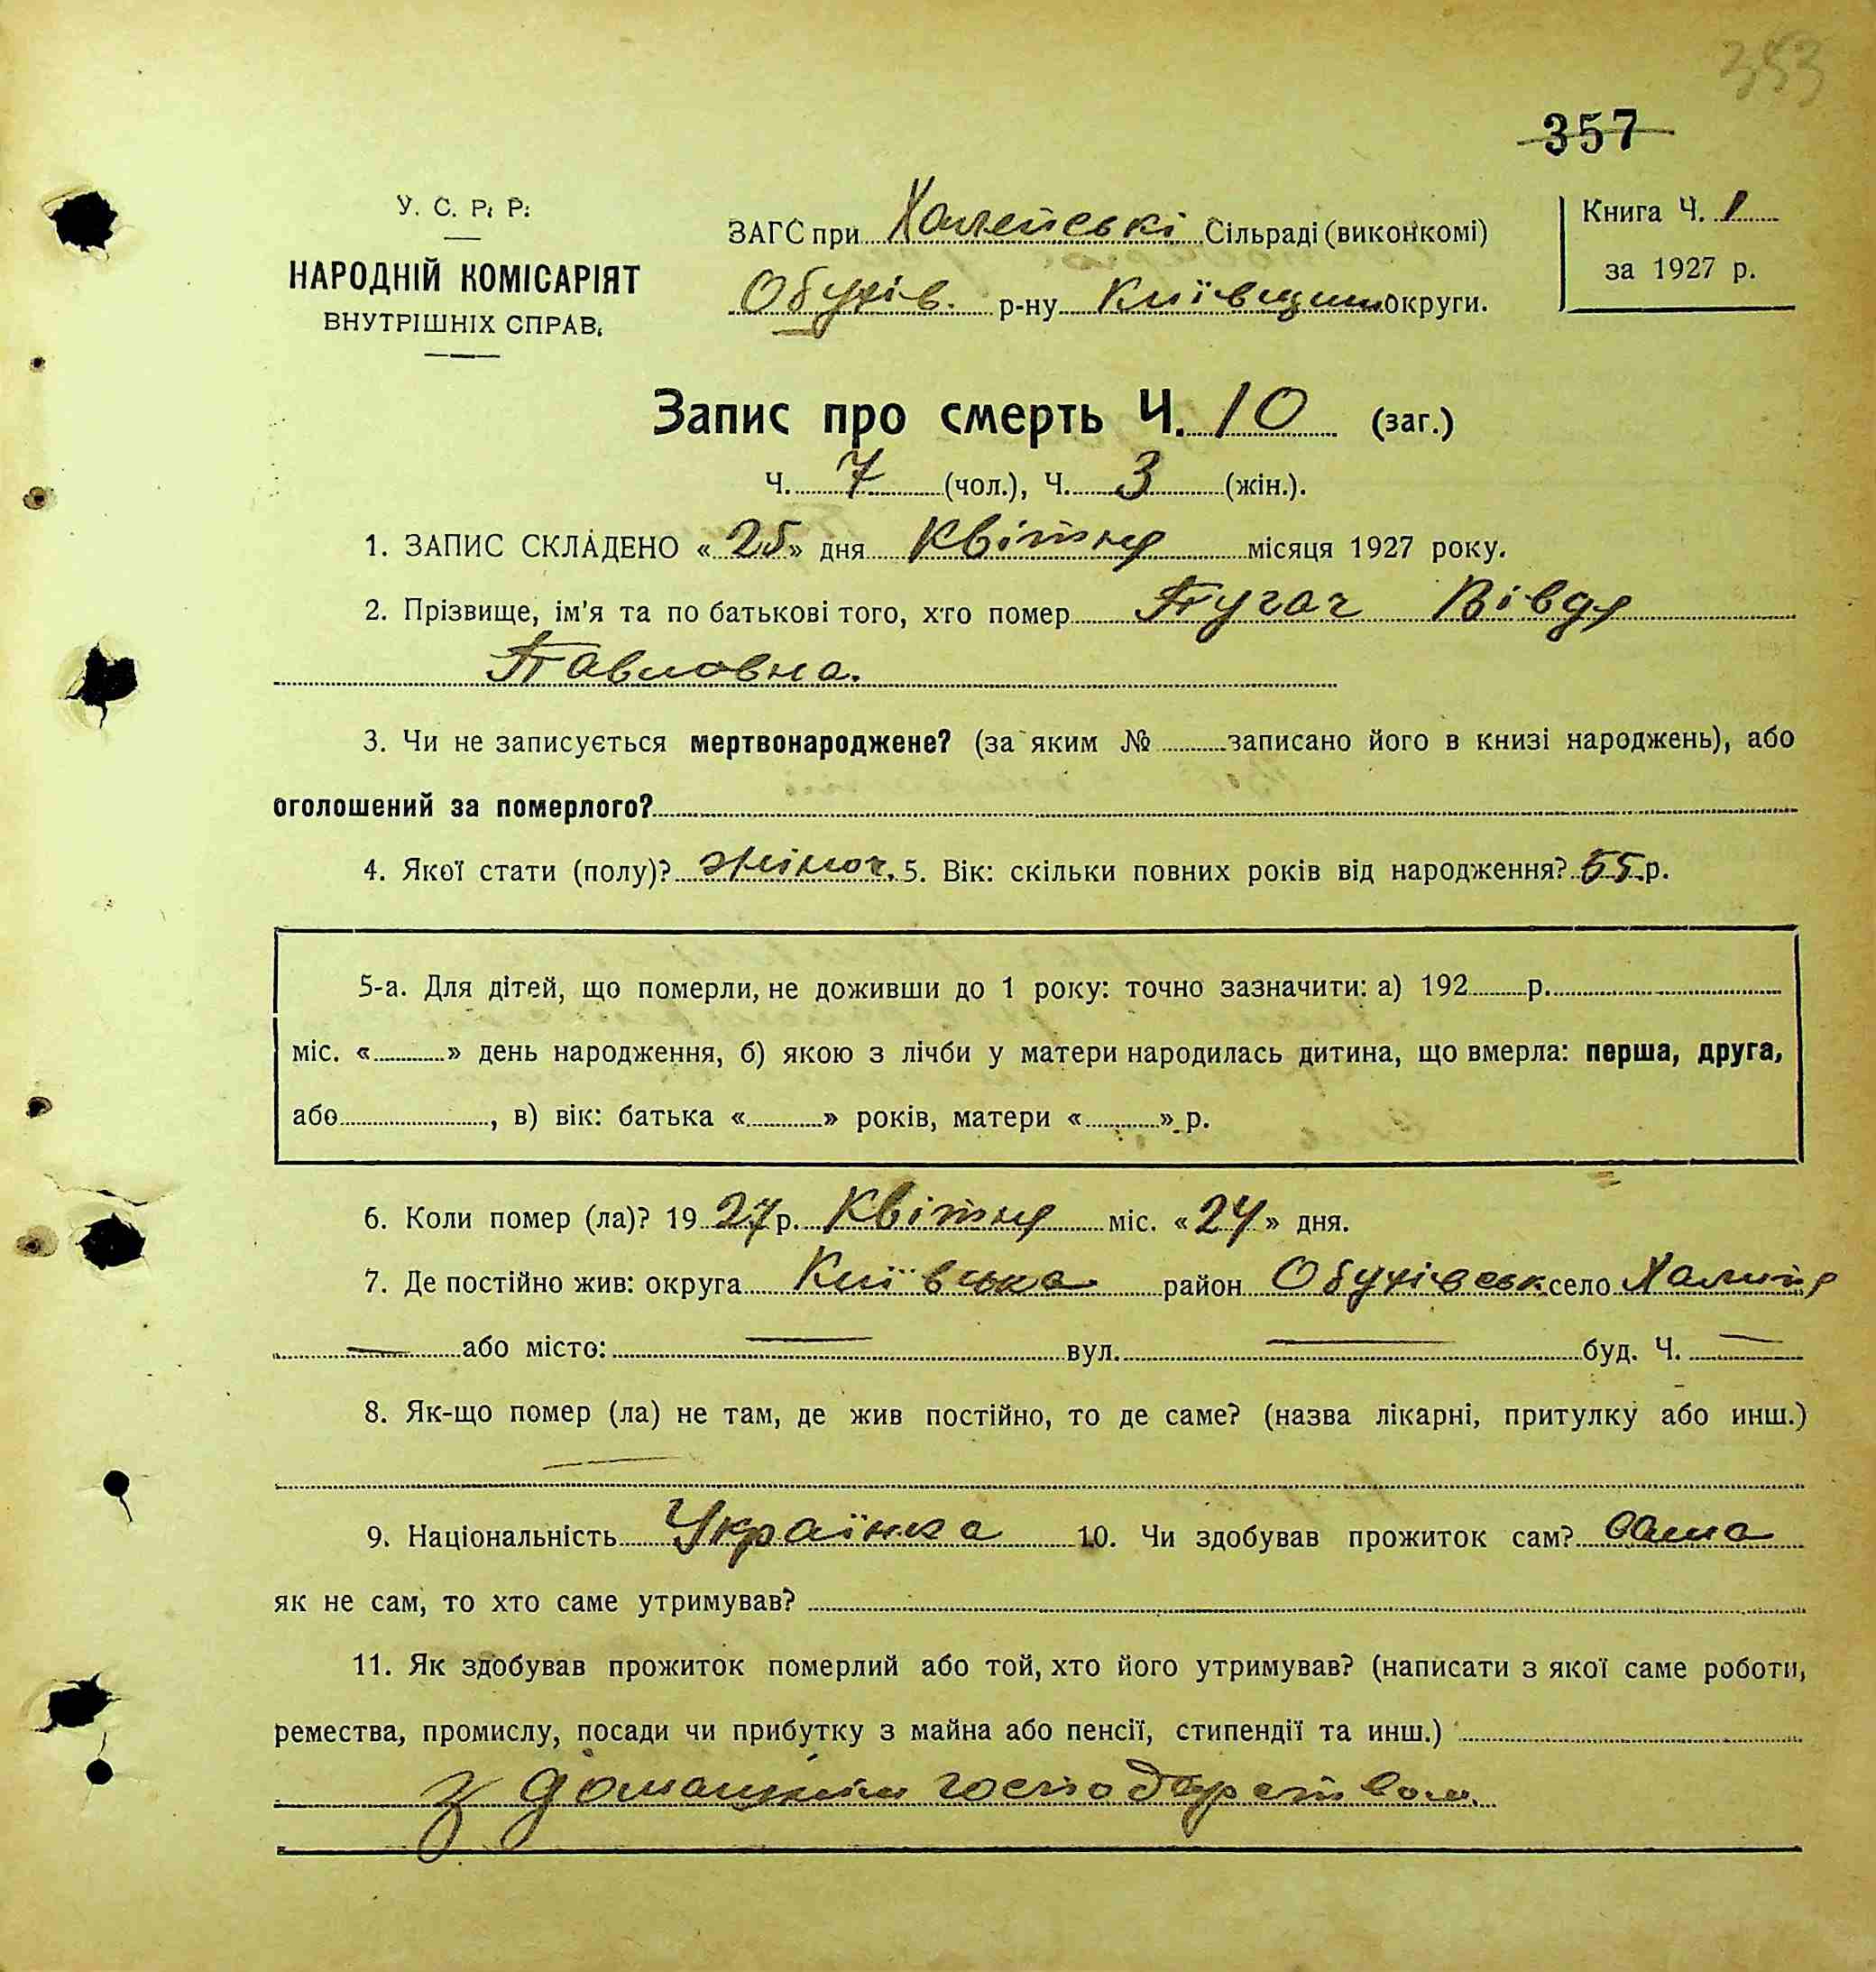 353
357
У. С. Р. Р.
ЗАГС при Халепські Сільраді (виконкомі)
Книга Ч. 1
НАРОДНІЙ КОМІСАРІЯТ
за 1927 р.
Обухів. р-ну Київщини округи.
ВНУТРІШНІХ СПРАВ.
Запис про смерть Ч. 10 (заг.)
Ч. 7 (чол.), Ч. 3 (жін.).
1. ЗАПИС СКЛАДЕНО « 25 » дня Квітня місяця 1927 року.
2. Прізвище, ім'я та по батькові того, хто помер Пугач Вівдя
Павловна.
3. Чи не записується мертвонароджене? (за яким № записано його в книзі народжень), або
оголошений за померлого?
4. Якої стати (полу)? жіноч. 5. Вік: скільки повних років від народження? 55 р.
5-а. Для дітей, що померли, не доживши до 1 року: точно зазначити: а) 192 р.
міс. « » день народження, б) якою з лічби у матери народилась дитина, що вмерла: перша, друга,
або , в) вік: батька « » років, матери « » р.
6. Коли помер (ла)? 19 27 р. Квітня міс. « 24 » дня.
7. Де постійно жив: округа Київська район Обухівськ село Халипя
— або місто: — вул. — буд. Ч. —
8. Як-що помер (ла) не там, де жив постійно, то де саме? (назва лікарні, притулку або инш.)
—
9. Національність Українка 10. Чи здобував прожиток сам? сама
як не сам, то хто саме утримував?
11. Як здобував прожиток померлий або той, хто його утримував? (написати з якої саме роботи,
ремества, промислу, посади чи прибутку з майна або пенсії, стипендії та инш.)
з домашнім господарством.